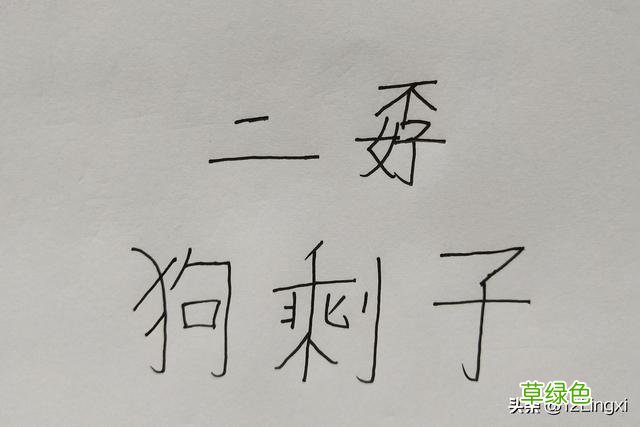 二孬
狗剩子
草绿色
头条 @12Lingxi